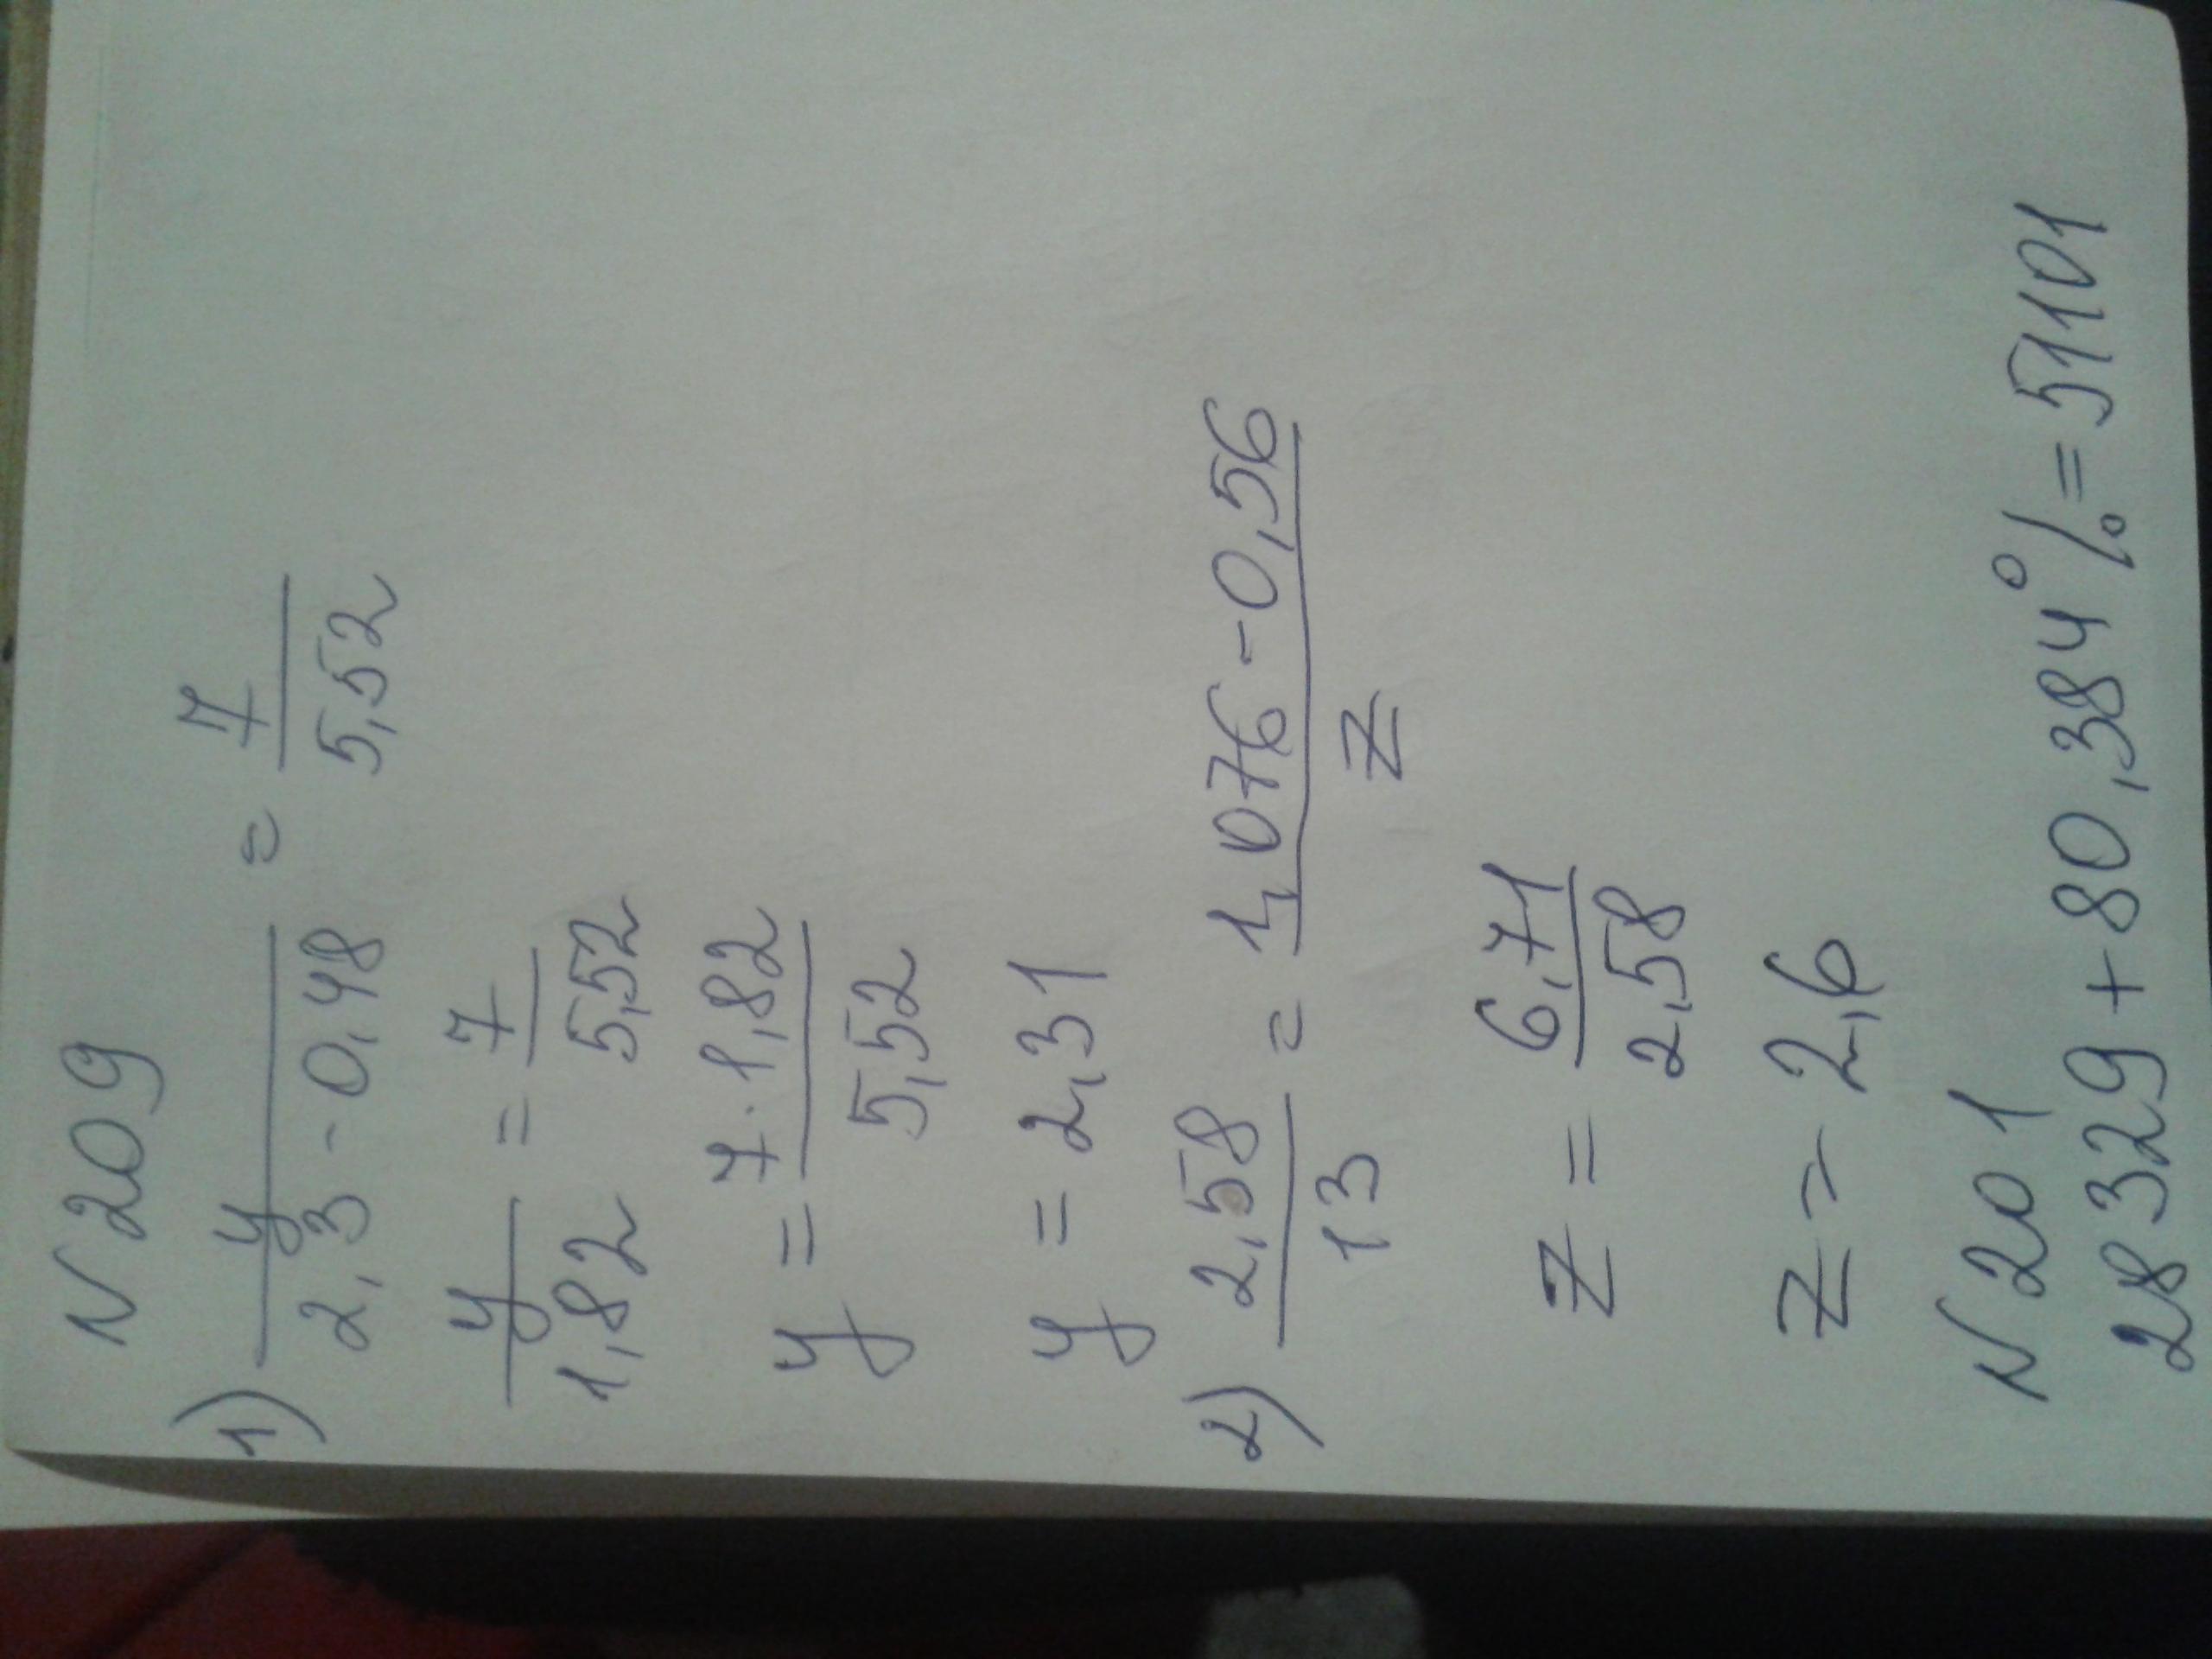 N 209
1) y / 2,3 - 0,48 = 7 / 5,52
y / 1,82 = 7 / 5,52
y = 7 · 1,82 / 5,52
y = 2,31
2) 2,58 / 13 = 1,076 - 0,56 / z
z = 6,71 / 2,58
z = 2,6
N 201
28329 + 80,384% = 51101